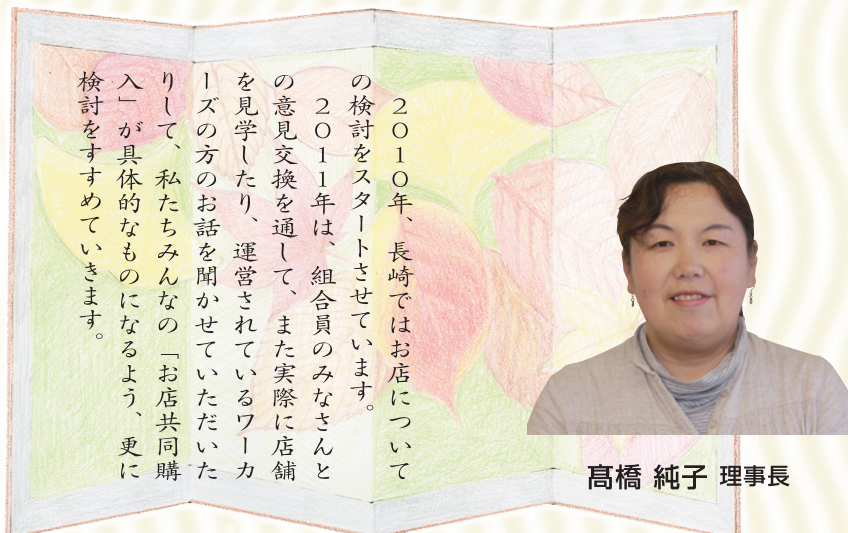 ２０１０年、長崎ではお店について
の検討をスタートさせています。
　２０１１年は、組合員のみなさんと
の意見交換を通して、また実際に店舗
を見学したり、運営されているワーカ
ーズの方のお話を聞かせていただいた
りして、私たちみんなの「お店共同購
入」が具体的なものになるよう、更に
検討をすすめていきます。
髙橋 純子 理事長